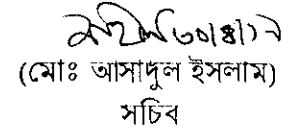 ৩০/৪/১৭
(মোঃ আসাদুল ইসলাম)
সচিব